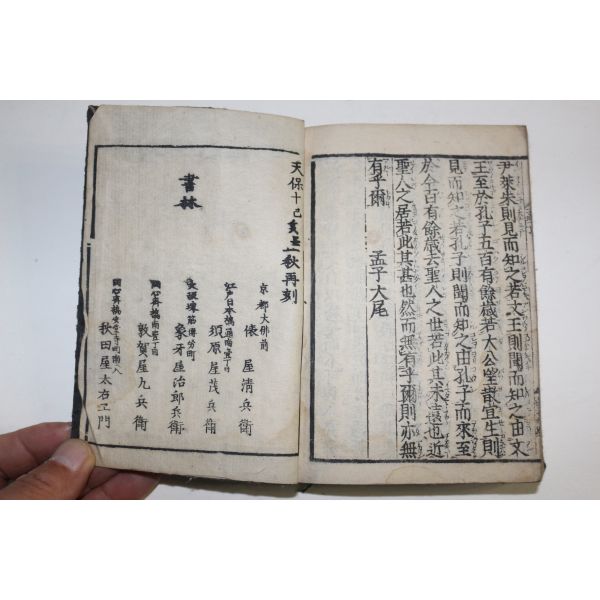 尹萊朱則見而知之若文王則聞而知之由文
王至於孔子五百有餘歳若大公望散宜生則
見而知之若孔子則聞而知之由孔子而來至
於今百有餘歳去聖人之世若此其未遠也近
聖人之居若此其甚也然而無有乎爾則亦無
有乎爾
孟子大尾
天保十己亥 秋再刻
書林
京都大佛前
俵屋清兵衛
江戸日本橋通南壹丁目
須原屋茂兵衛
筋博労町
象牙屋治郎兵衛
同心斉橋南壹丁目
敦賀屋九兵衛
同心斉橋安堂寺町南へ入
秋田屋太右エ門